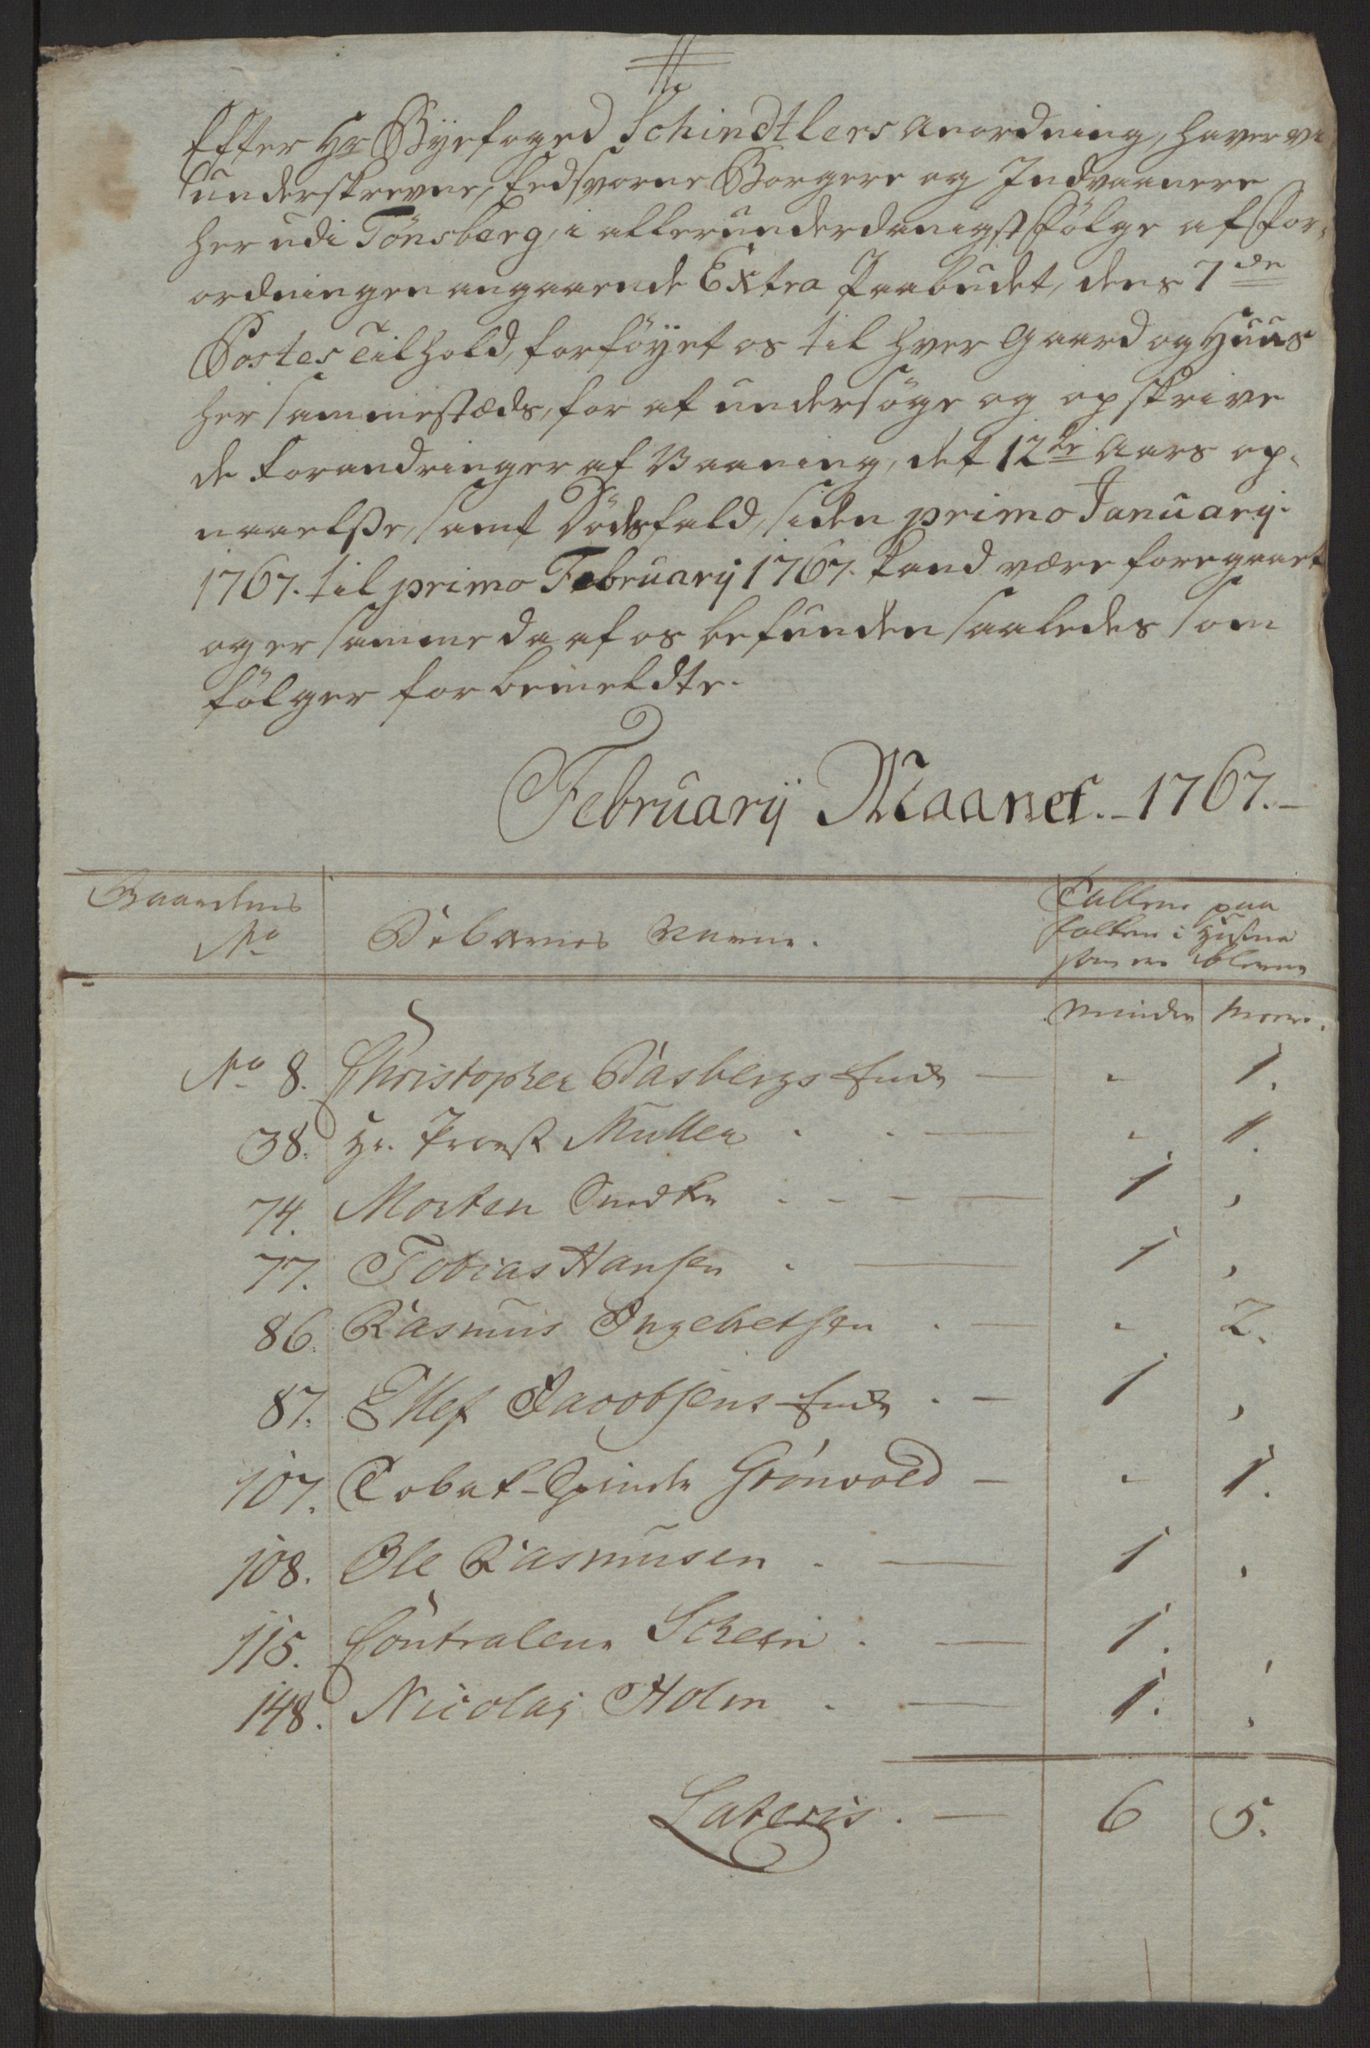 Efter Hr Byefoged Schindtlers anordning, haver vi
underskrevne, Eedsvorne Borgere og Indvaanere
her udi Tönsberg, i allerunderdanigst fölge af For-
ordningen angaaende Extra Paabudet, dens 7de
Postes Tilhold, forföyet os til hver Gaard og Huus
her sammestæds, for at undersöge og opskrive
de Forandringer af Vaaning, det 12te Aars op-
naaelse, samt Dödsfald, siden primo Januarij
1767. til primo Februarij 1767. kand være foregaaet
og er samme da af os befunden saaledes som
fölger for bemeldte.
Februarij Maanet. 1767.
Gaardenes Tallene paa
No Beboernes Navne. Folken i Husene
som ere blevne
Mindre Meere.
No 8. Christopher Dasbergs Enke - 1.
38. Hr. Provst Muller - 1.
74. Morten Smedke 1 ,
77. Tobias Hansen 1 ,
86. Rasmus Ingebretsen - 2.
87. Ellef Jacobsens Enke 1 ,
107. Tobak-Spinder Grönvold - 1.
108. Ole Rasmusen 1 ,
115. Controleur Schein 1. ,
148. Nicolaj Holm 1. ,
Lateris 6 5.